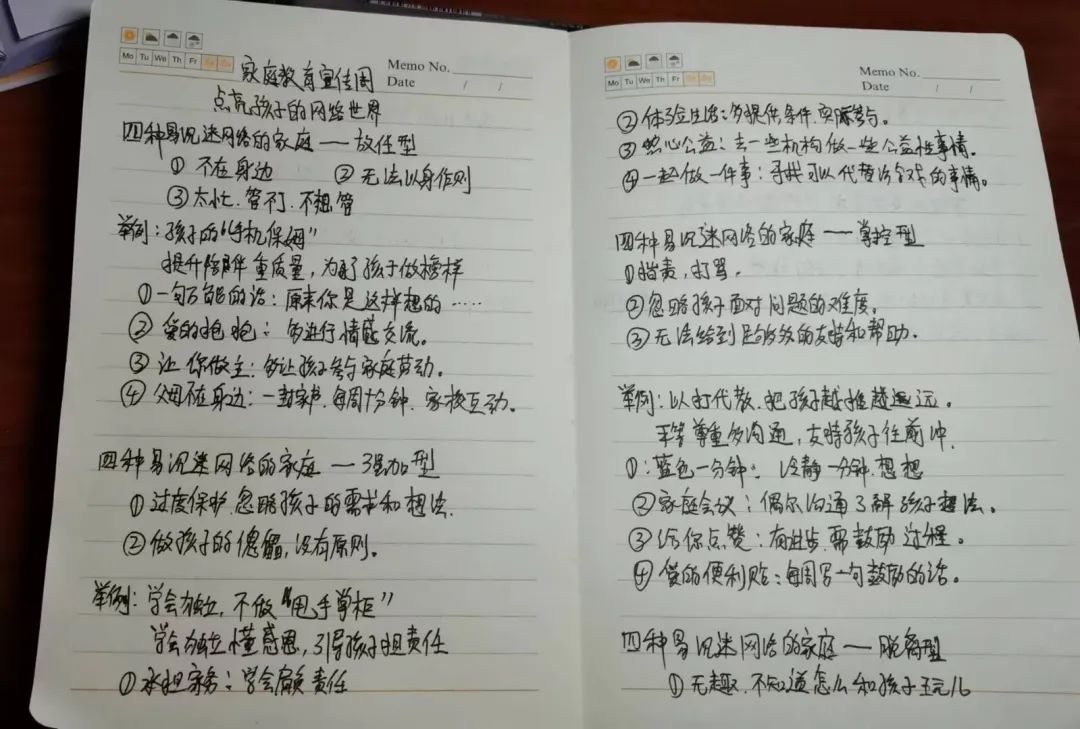 Mo Tu We Th Fr Sa Su
Memo No.
Date / /
家庭教育宣传周
点亮孩子的网络世界
四种易沉迷网络的家庭——放任型
① 不在身边 ② 无法以身作则
③ 太忙.管不了.不想管
举例：孩子的“手机保姆”
提升陪伴重质量，为了孩子做榜样
①一句万能的话：原来你是这样想的……
②爱的抱抱：多进行情感交流。
③让你做主：多让孩子参与家庭劳动。
④父母不在身边：一封家书.每周十分钟.家校互动。
四种易沉迷网络的家庭——强加型
①过度保护.忽略孩子的需求和想法.
②做孩子的傀儡，没有原则。
举例：学会独立，不做“甩手掌柜”
学会独立懂感恩，引导孩子担责任
①承担家务：学会肩负责任
Mo Tu We Th Fr Sa Su
Memo No.
Date / /
②体验生活：多提供条件.实际参与。
③热心公益：去一些机构做一些公益性事情。
④一起做一件事：寻找可以代替游戏的事情。
四种易沉迷网络的家庭——掌控型
①指责，打骂。
②忽略孩子面对问题的难度。
③无法给到足够多的支持和帮助.
举例：以打代教.把孩子越推越远。
平等尊重多沟通，支持孩子往前冲.
①：蓝色一分钟：冷静一分钟.想想
②家庭会议：偶尔沟通了解孩子想法。
③给你点赞：有进步.需鼓励过程。
④爱的便利贴：每周写一句鼓励的话。
四种易沉迷网络的家庭——脱离型
①无趣.不知道怎么和孩子玩儿